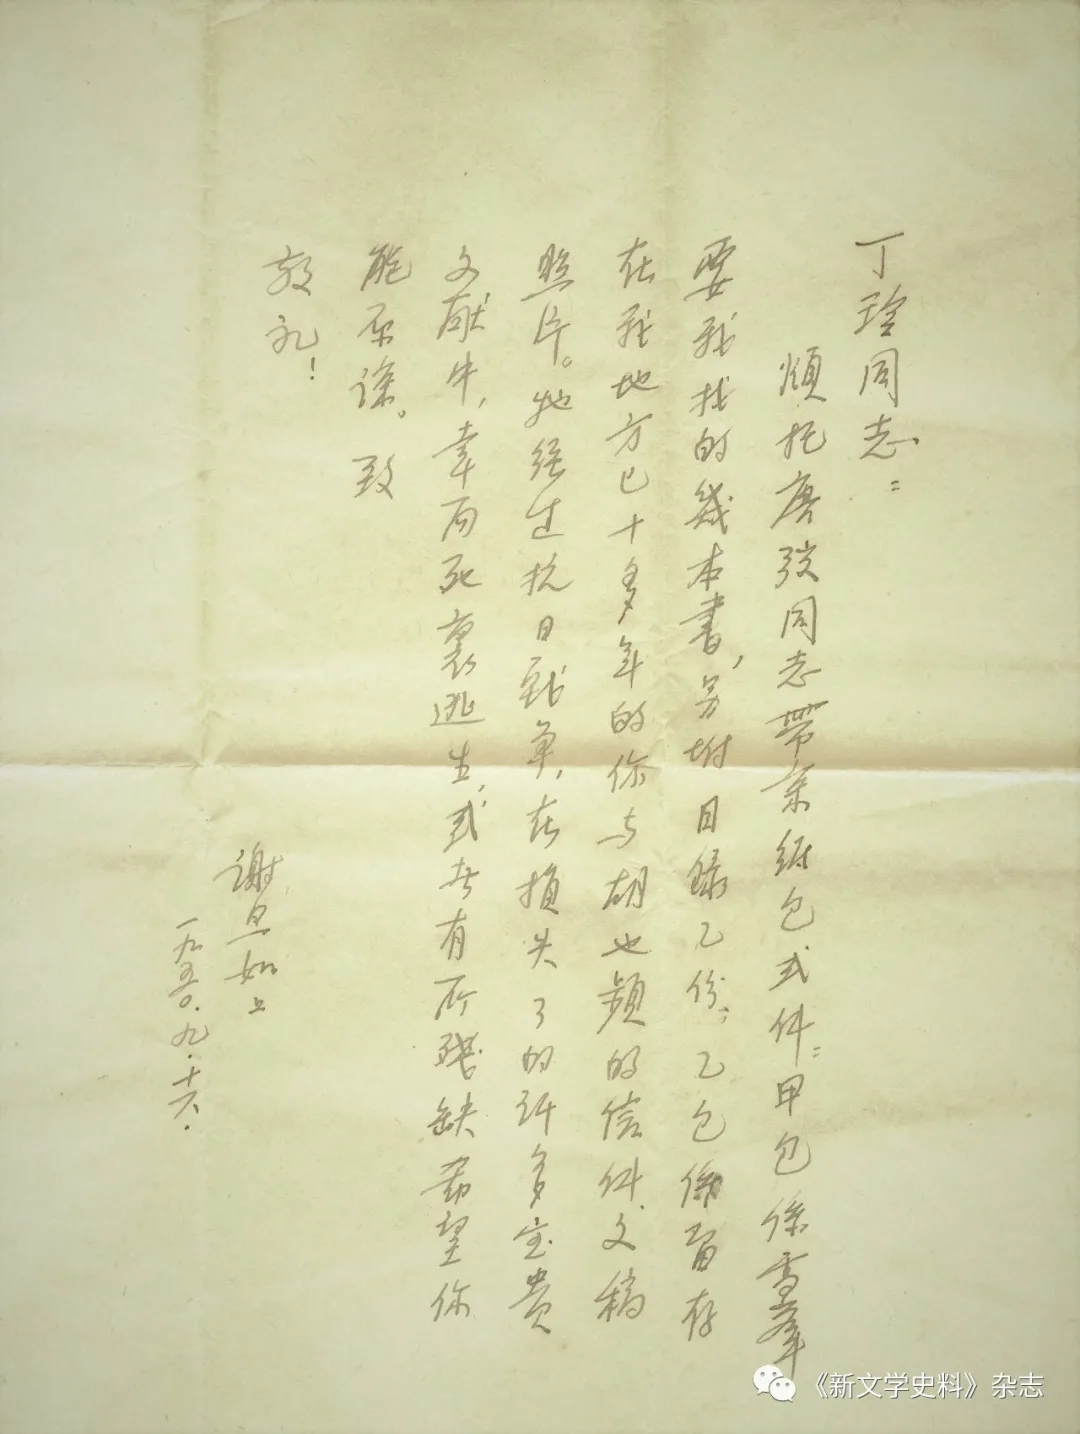 丁玲同志：
煩托唐弢同志帶來紙包弍件：甲包係雪峯
要我找的幾本書，另坿目録乙份；乙包係留存
在我地方已十多年的你与胡也频的信件、文稿
照片。牠经过抗日戰争，在損失了的許多宝贵
文献中，幸而死裏逃生，或者有所殘缺希望你
能原諒。致
敬礼！
谢旦如上
一九五〇.九.十六.
《新文学史料》杂志